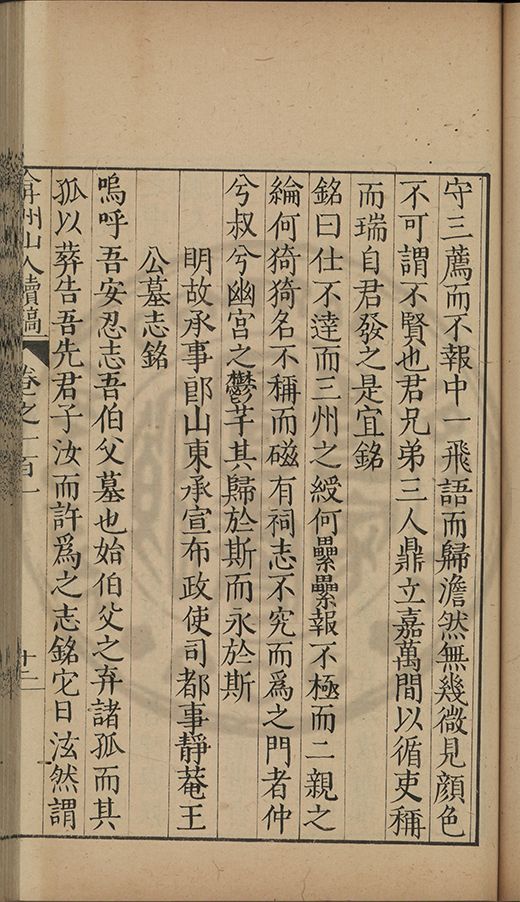 守三薦而不報中一飛語而歸澹然無幾微見顏色
不可謂不賢也君兄弟三人鼎立嘉萬間以循吏稱
而瑞自君發之是宜銘
銘曰仕不達而三州之綬何纍纍報不極而二親之
綸何猗猗名不稱而磁有祠志不究而爲之門者仲
兮叔兮幽宮之鬱芊其歸於斯而永於斯
明故承事郎山東承宣布政使司都事靜菴王
公墓志銘
嗚呼吾安忍志吾伯父墓也始伯父之弃諸孤而其
孤以葬告吾先君子汝而許爲之志銘它日泫然謂
弇州山人續稿 卷之一百一 十二